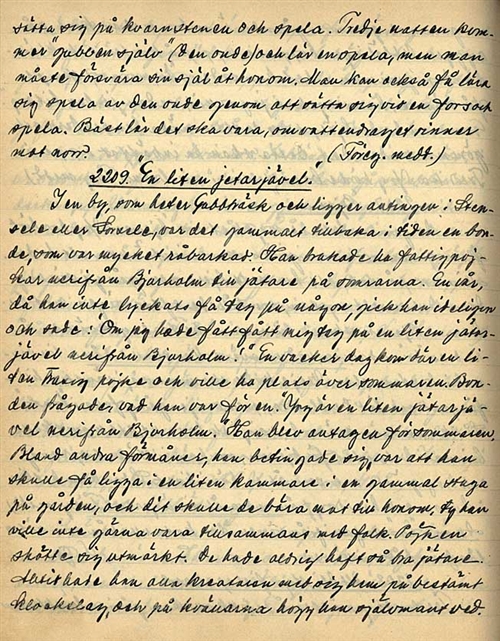 sätta sig på kvarnstenen och spela. Tredje natten kom-
mer "gubben själv" (den onde) och lär en spela, men man
måste försvära sin själ åt honom. Man kan också få lära
sig spela av den onde genom att sätta sig vid en fors och
spela. Bäst lär det ska vara, om vattendraget rinner
mot norr. (Föreg. medd.)
2209. En liten jetarjävel."
I en by, som heter Gubbträsk och ligger antingen i Sten-
sele eller Sorsele, var det gammalt tillbaka i tiden en bon-
de, som var mycket råbarkad. Han brukade ha fattigpoj-
kar nerifrån Bjurholm till jätare på somrarna. En vår,
då han inte lyckats få tag på någon, gick han ideligen
och sade: "Om jag hade fått fatt mig tag på en liten jätar-
jävel nerifrån Bjurholm." En vacker dag kom där en li-
ten trasig pojke och ville ha plats över sommaren. Bon-
den frågade, vad han var för en. "Jag är en liten jätarjä-
vel nerifrån Bjurholm." Han blev antagen för sommaren.
Bland andra förmåner, han betingade sig, var att han
skulle få ligga i en liten kammare i en gammal stuga
på gården, och dit skulle de bära mat till honom, ty han
ville inte gärna vara tillsammans med folk. Pojken
skötte sig utmärkt. De hade aldrig haft så bra jätare.
Alltid hade han alla kreaturen med sig hem på bestämt
klockslag, och på kvällarna högg han självmant ved.